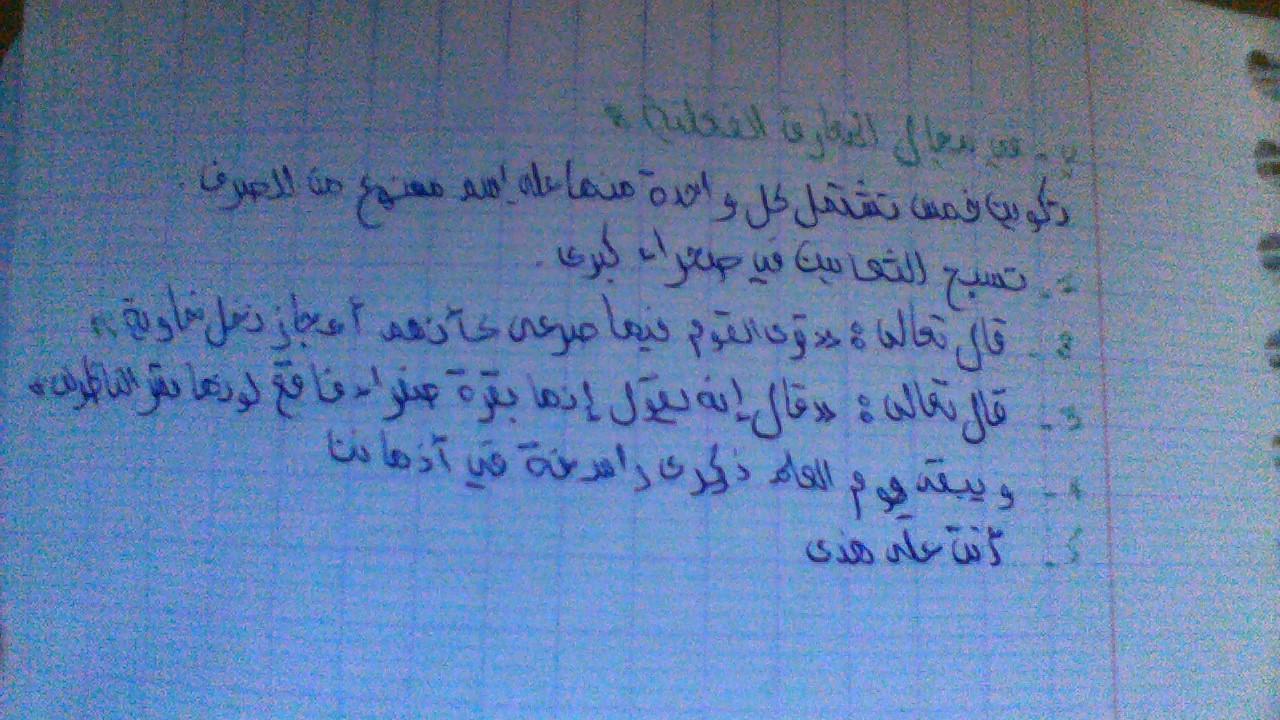 في مجال المعارف الفعلية:
تكوين خمس تشتمل كل واحدة منها على اسم ممنوع من الصرف.
1- تسبح الثعابين في صحراء كبرى.
2- قال تعالى: «ترى القوم فيها صرعى كأنهم أعجاز نخل خاوية»
3- قال تعالى: «قال إنه يقول إنها بقرة صفراء فاقع لونها تسر الناظرين»
4- ويبقى يوم العلم ذكرى راسخة في أذهاننا
5- أنت على هدى